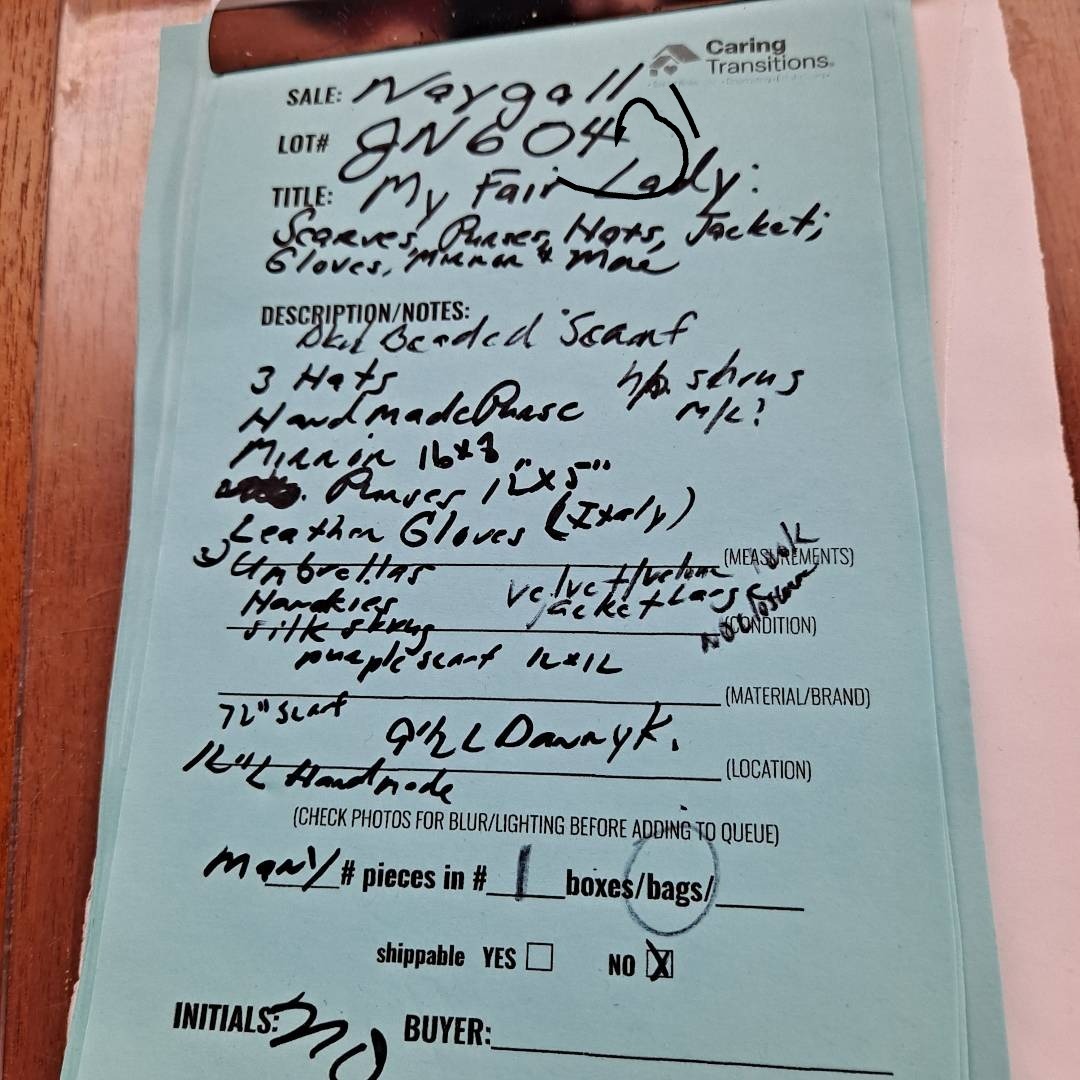 Caring
Transitions
SALE: Naygall
LOT# JN604
TITLE: My Fair Lady:
Scarves, Purses, Hats, Jacket;
Gloves, Mirror & More
DESCRIPTION/NOTES:
Beaded Scarf
3 Hats
shrug
Handmade Purse
M/L?
Mirror 16x8
Purses 12"x5"
Leather Gloves (Italy)
(MEASUREMENTS)
Umbrellas
Velvet/velour
Hankies
Jacket Large
(CONDITION)
Silk shrug
purple scarf 12x12
(MATERIAL/BRAND)
72" scarf
Danny K.
(LOCATION)
12"L Handmade
(CHECK PHOTOS FOR BLUR/LIGHTING BEFORE ADDING TO QUEUE)
Many # pieces in # 1 boxes/bags/
shippable YES NO X
INITIALS: BUYER: